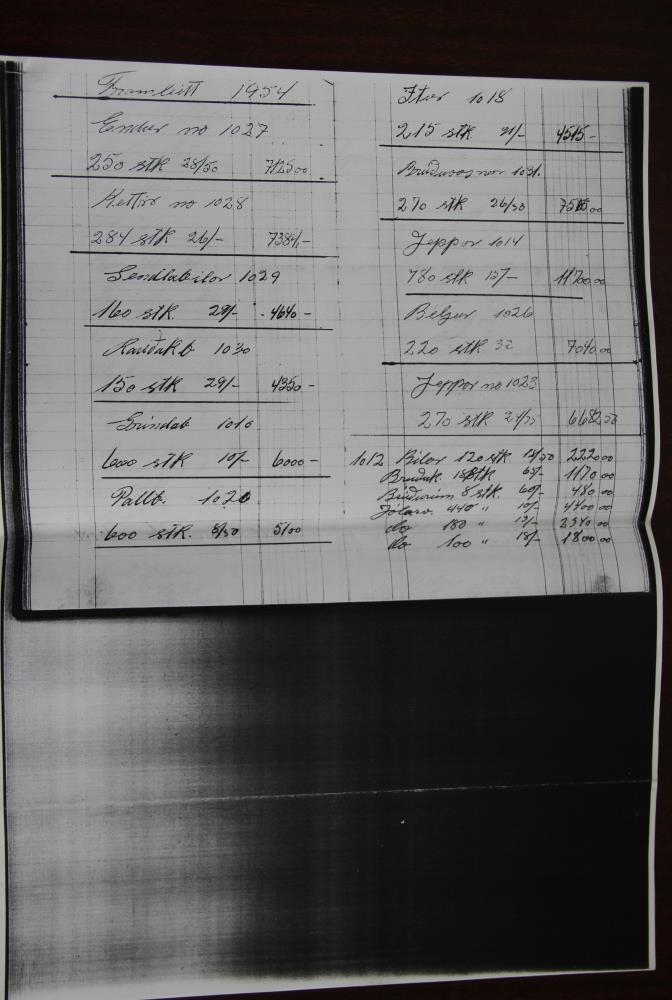 Framleitt 1954
Endur no 1027
250 stk 28/50 7125.00
Kettir no 1028
284 stk 26/- 7384.-
Sendlabílar 1029
160 stk. 29/- 4640-
1030
150 stk 29/- 4350-
1016
6000 stk 10/- 6000-
Pallb. 1020
600 stk. 8/50 5100
1018
215 stk 21/- 4515-
1031.
270 stk 26/50
Jeppar 1014
780 stk 15/- 11700.00
Beljur 1026
220 stk 32 7040.00
Jeppar no 1023
270 stk 24/75 6682.50
1012 Bílar 120 stk. 18/50 2220.00
65/- 1170.00
8 stk. 60/- 480.00
440 " 10/- 4400.00
do 180 " 13/- 2340.00
do 100 " 18/- 1800.00